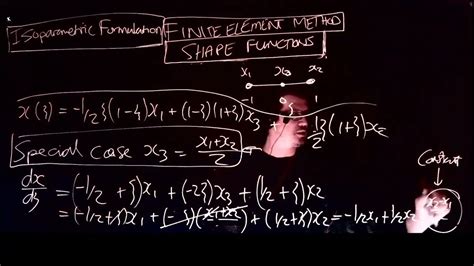 Isoparametric Formulation
FINITE ELEMENT METHOD
SHAPE FUNCTONS
x₁ x₃ x₂
-1 ξ 1
x(ξ) = -1/2 ξ(1-ξ)x₁ + (1-ξ)(1+ξ)x₃ + 1/2 ξ(1+ξ)x₂
Special Case x₃ = (x₁+x₂)/2
Constant
dx/dξ = (-1/2 + ξ)x₁ + (-2ξ)x₃ + (1/2+ξ)x₂
= (-1/2+ξ)x₁ + (-2ξ)((x₁+x₂)/2) + (1/2+ξ)x₂ = -1/2x₁+1/2x₂